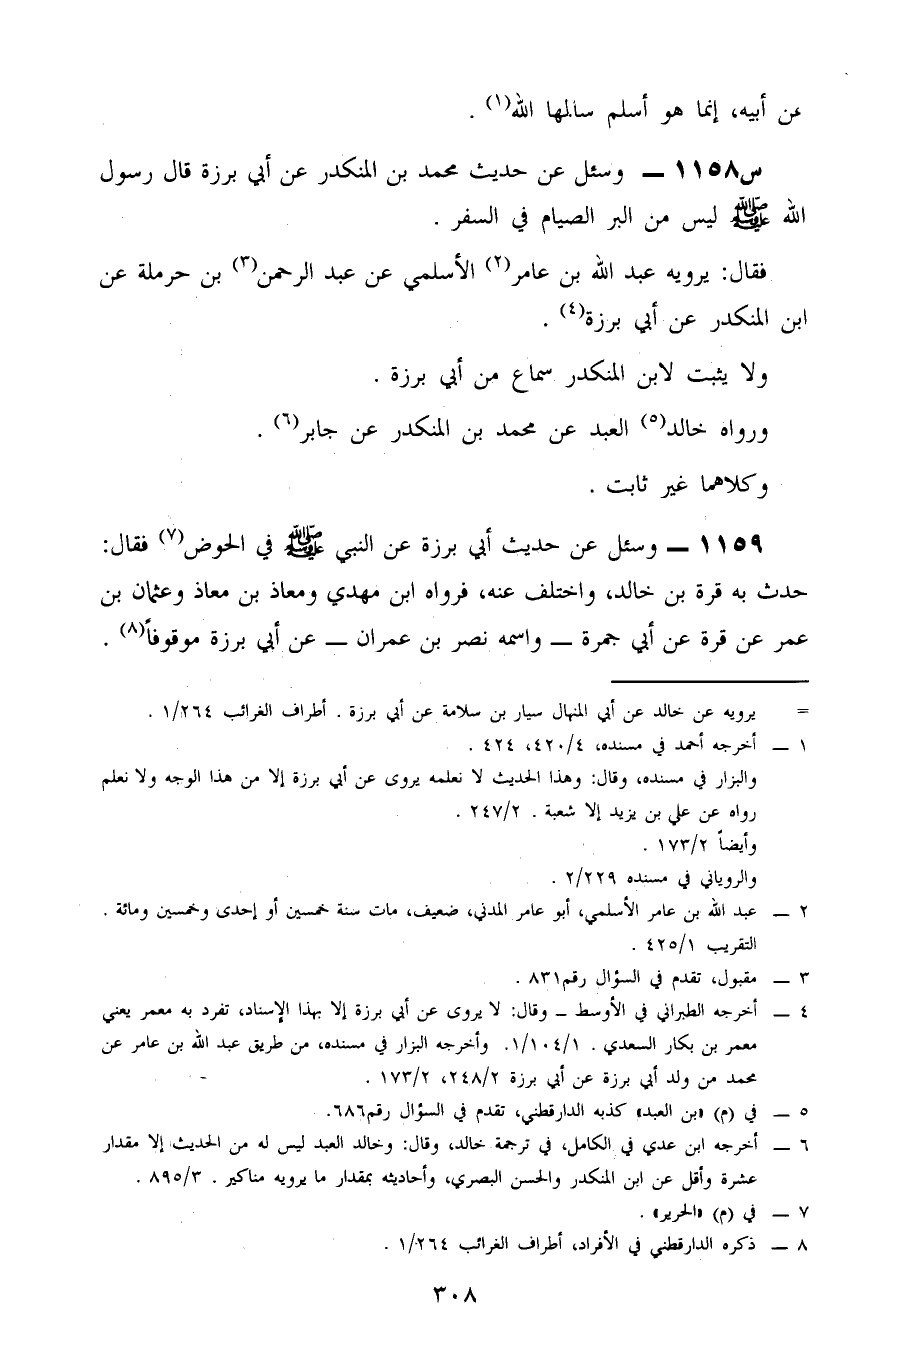 عن أبيه، إنما هو أسلم سالمها الله(١) .
س١١٥٨ ـ وسئل عن حديث محمد بن المنكدر عن أبي برزة قال رسول
الله ﷺ ليس من البر الصيام في السفر .
فقال: يرويه عبد الله بن عامر(٢) الأسلمي عن عبد الرحمن(٣) بن حرملة عن
ابن المنكدر عن أبي برزة(٤) .
ولا يثبت لابن المنكدر سماع من أبي برزة .
ورواه خالد(٥) العبد عن محمد بن المنكدر عن جابر(٦) .
وكلاهما غير ثابت .
١١٥٩ ـ وسئل عن حديث أبي برزة عن النبي ﷺ في الحوض(٧) فقال:
حدث به قرة بن خالد، واختلف عنه، فرواه ابن مهدي ومعاذ بن معاذ وعثمان بن
عمر عن قرة عن أبي جمرة ـ واسمه نصر بن عمران ـ عن أبي برزة موقوفاً(٨) .
= يرويه عن خالد عن أبي المنهال سيار بن سلامة عن أبي برزة . أطراف الغرائب ١/٢٦٤ .
١ ـ أخرجه أحمد في مسنده، ٤٢٠/٤، ٤٢٤ .
والبزار في مسنده، وقال: وهذا الحديث لا نعلمه يروى عن أبي برزة إلا من هذا الوجه ولا نعلم
رواه عن علي بن يزيد إلا شعبة . ٢٤٧/٢ .
وأيضاً ١٧٣/٢ .
والروياني في مسنده ٢/٢٢٩ .
٢ ـ عبد الله بن عامر الأسلمي، أبو عامر المدني، ضعيف، مات سنة خمسين أو إحدى وخمسين ومائة .
التقريب ٤٢٥/١ .
٣ ـ مقبول، تقدم في السؤال رقم٨٣١ .
٤ ـ أخرجه الطبراني في الأوسط ـ وقال: لا يروى عن أبي برزة إلا بهذا الإسناد، تفرد به معمر يعني
معمر بن بكار السعدي . ١/١٠٤/١. وأخرجه البزار في مسنده، من طريق عبد الله بن عامر عن
محمد من ولد أبي برزة عن أبي برزة ٢٤٨/٢، ١٧٣/٢ .
٥ ـ في (م) «ابن العبد» كذبه الدارقطني، تقدم في السؤال رقم٦٨٦.
٦ ـ أخرجه ابن عدي في الكامل، في ترجمة خالد، وقال: وخالد العبد ليس له من الحديث إلا مقدار
عشرة وأقل عن ابن المنكدر والحسن البصري، وأحاديثه بمقدار ما يرويه مناكير . ٨٩٥/٣ .
٧ ـ في (م) «الحرير» .
٨ ـ ذكره الدارقطني في الأفراد، أطراف الغرائب ١/٢٦٤ .
٣٠٨